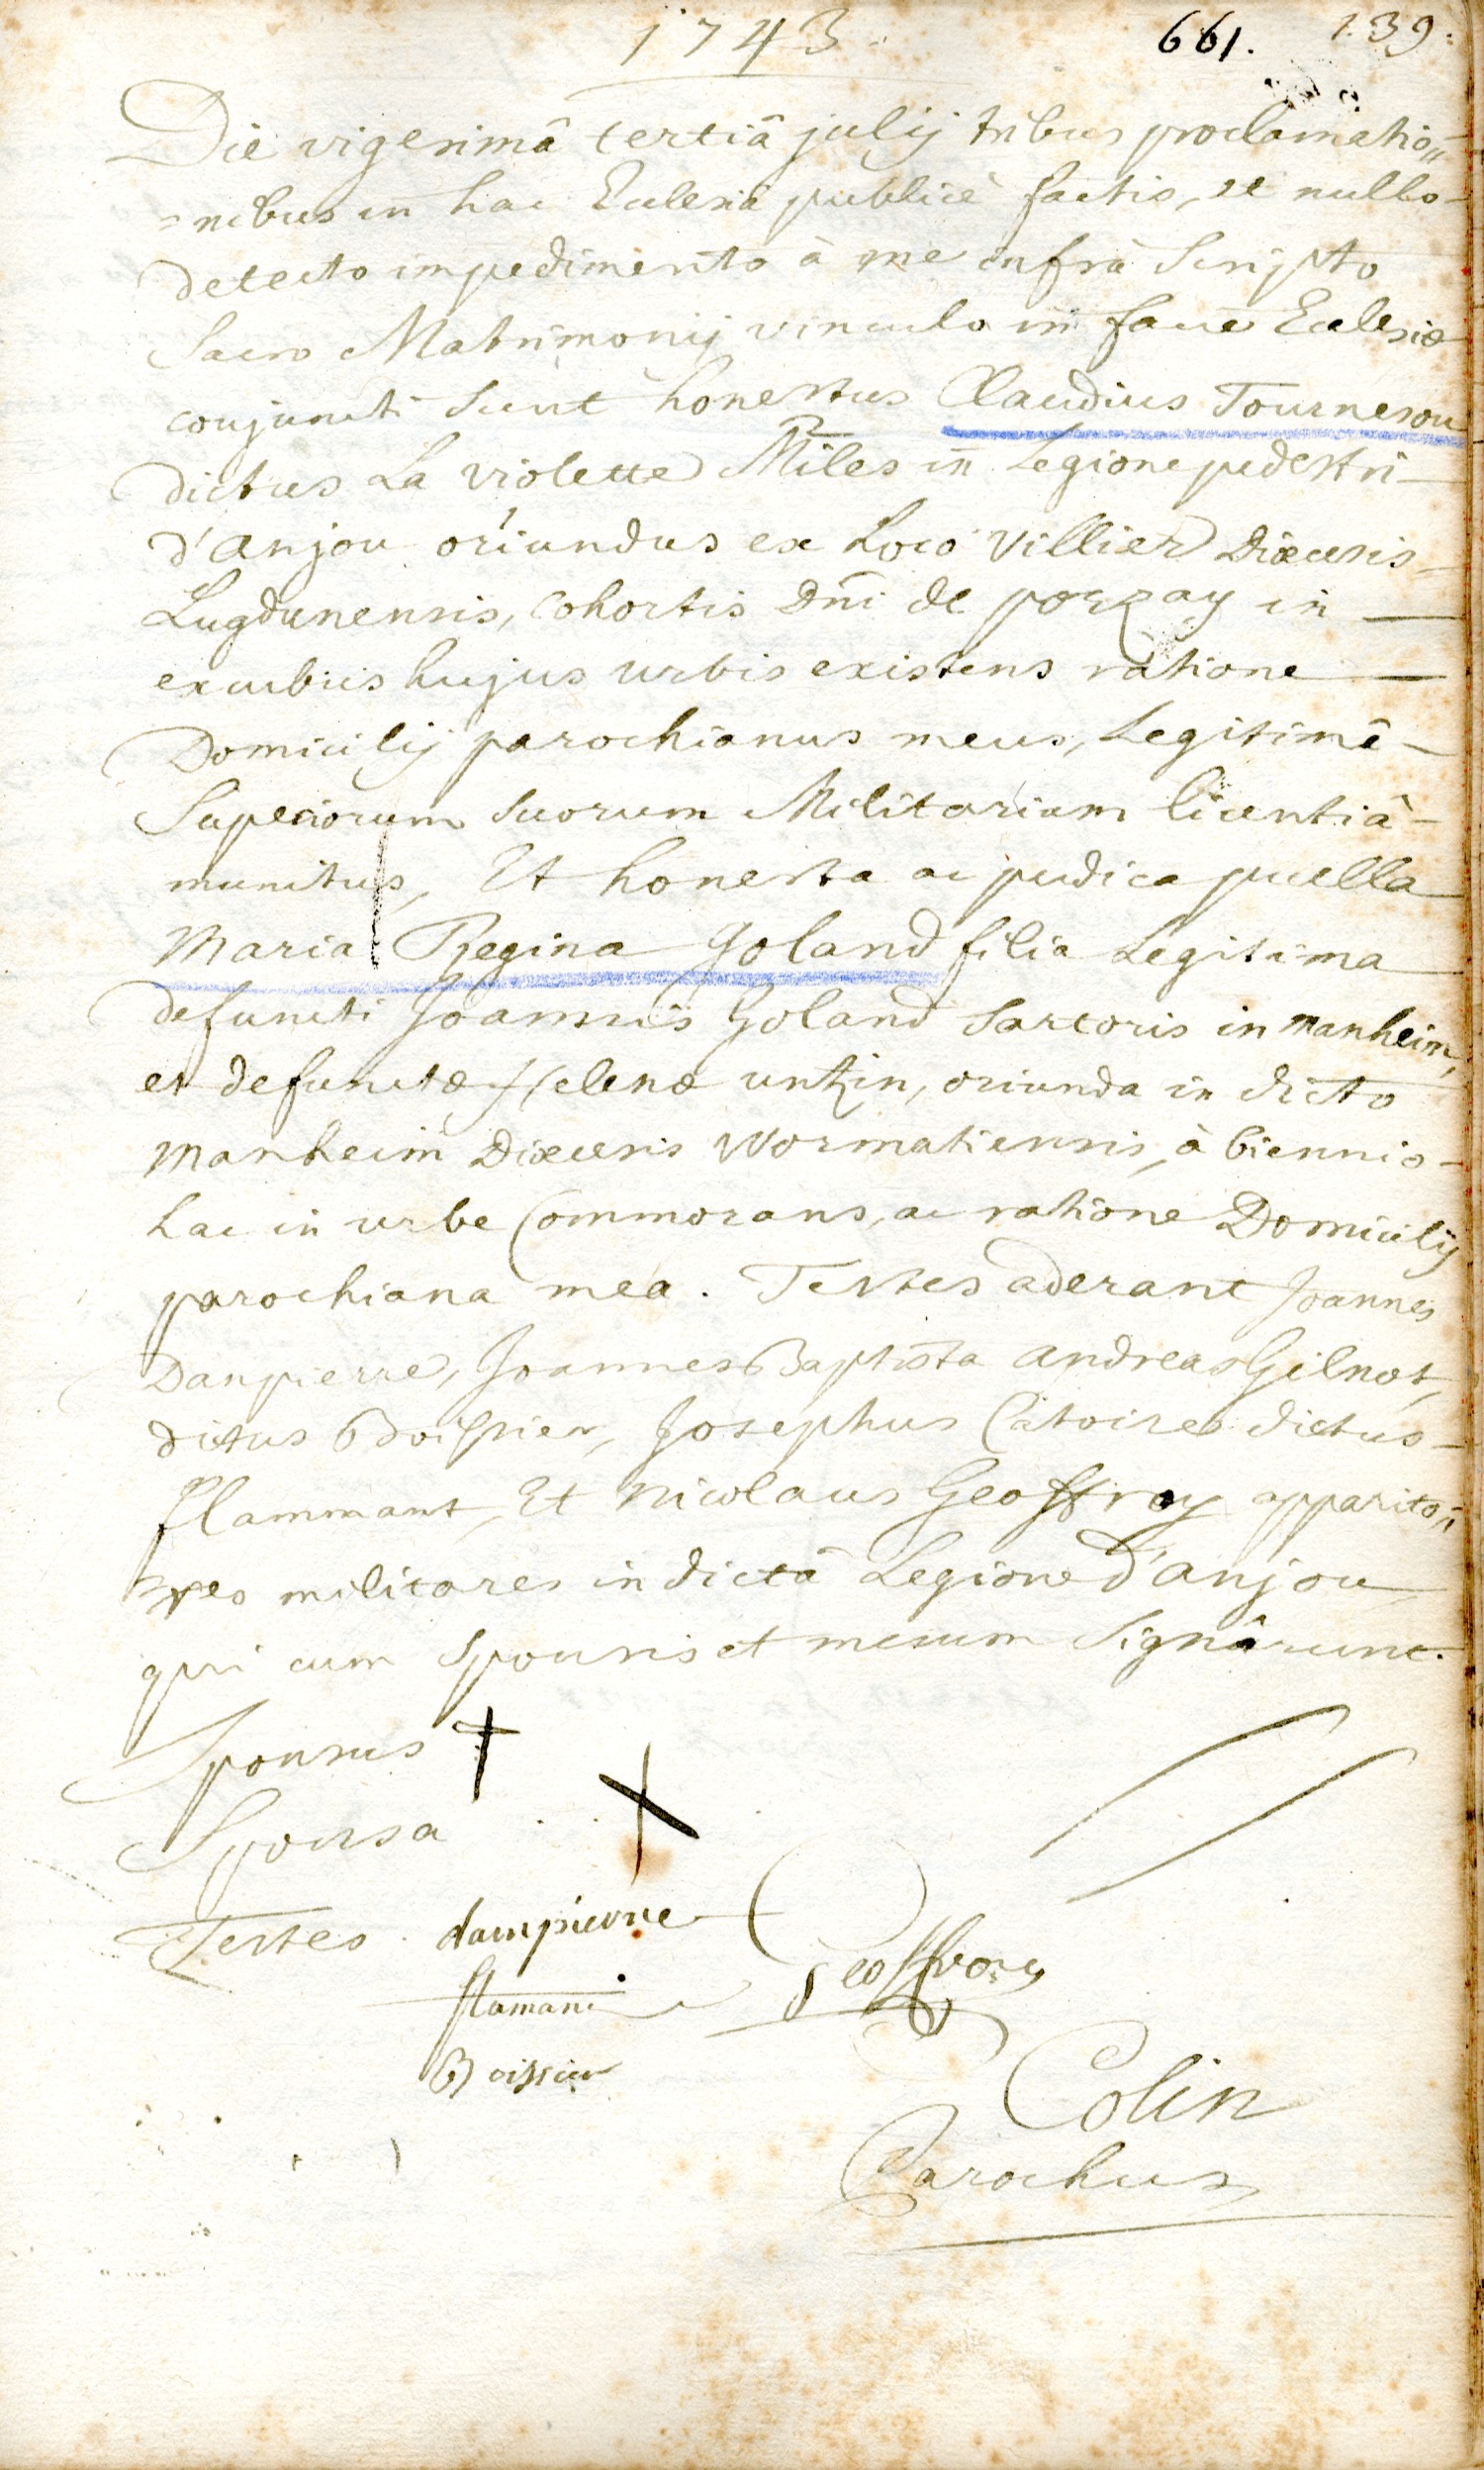 1743. 661. 139.
Die vigesimâ tertiâ julij tribus proclamatio„
=nibus in hac Ecclesiâ publicè factis, et nullo
detecto impedimento à me infrà Scripto
Sacro Matrimonij vinculo in facie Ecclesiæ
conjuncti Sunt honestus Claudius Tourneson
dictus La violette Miles in Legione pedestri
d'anjou oriundus ex Loco Villier Diœcesis
Lugdunensis, cohortis Dñi de porzay in
excubiis hujus urbis existens ratione
Domicilij parochianus meus, Legitimâ
Superiorum suorum Militarium licentiâ
munitus, Et honesta ac pudica puella
Maria Regina Goland filia Legitima
defuncti Joannis Goland Sartoris in Manheim,
et defunctæ Helenæ untzin, oriunda in dicto
Manheim Diœcesis Wormatiensis, à biennio
hac in urbe Commorans, ac ratione Domicilij
parochiana mea. Testes aderant Joannes
Danpierre, Joannes Baptista andreas Gilnot,
dictus Boissier, Josephus Catoire dictus
flammant, Et Nicolaus Geoffroy apparito„
res militares in dictâ Legione d'anjou
qui cum Sponsis et mecum Signârunt.
Sponsus +
Sponsa +
Testes dampierre
Geoffroy
flamant
Boissier
Colin
Parochus